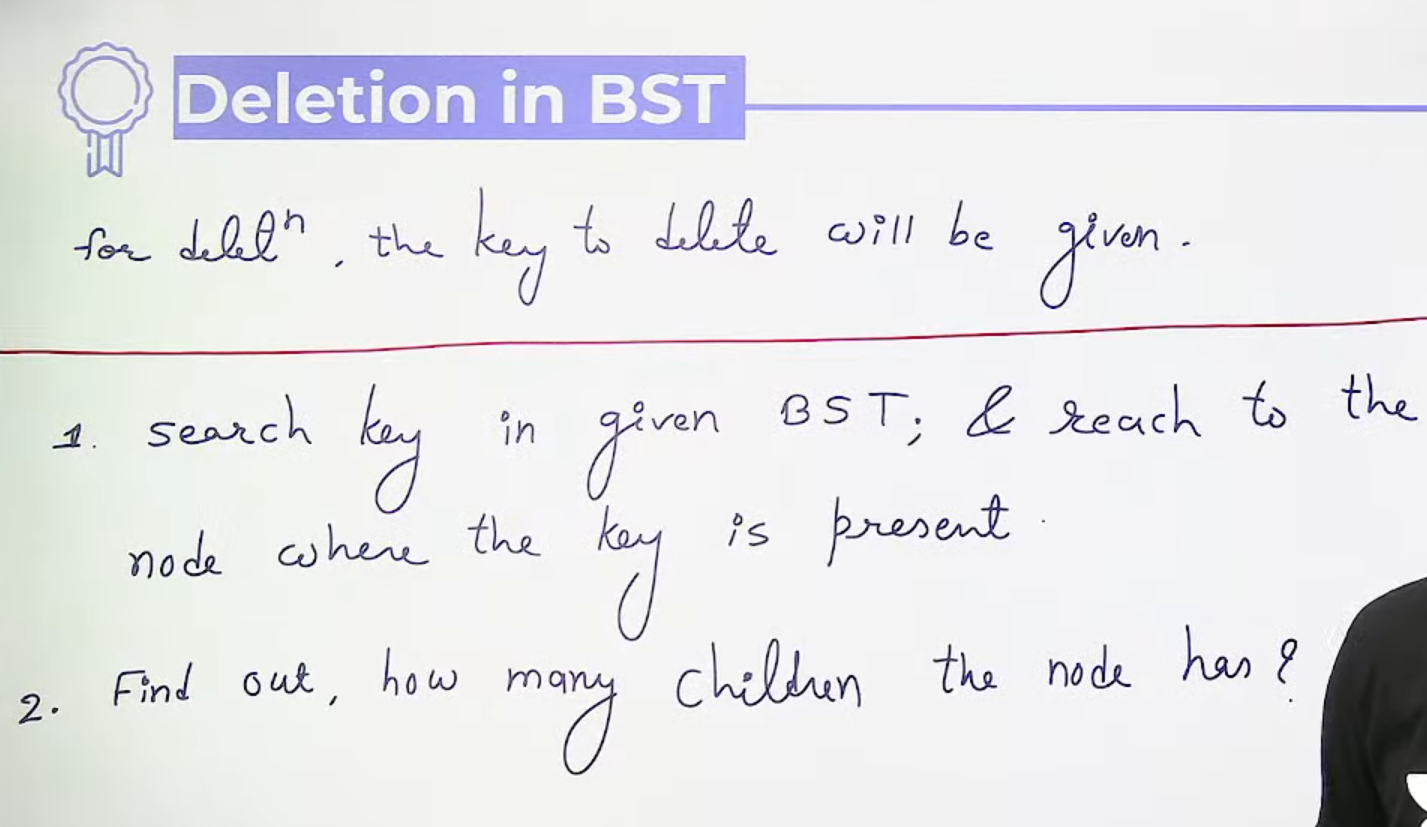 Deletion in BST
for deletⁿ, the key to delete will be given.
1. search key in given BST; & reach to the
node where the key is present.
2. Find out, how many children the node has?